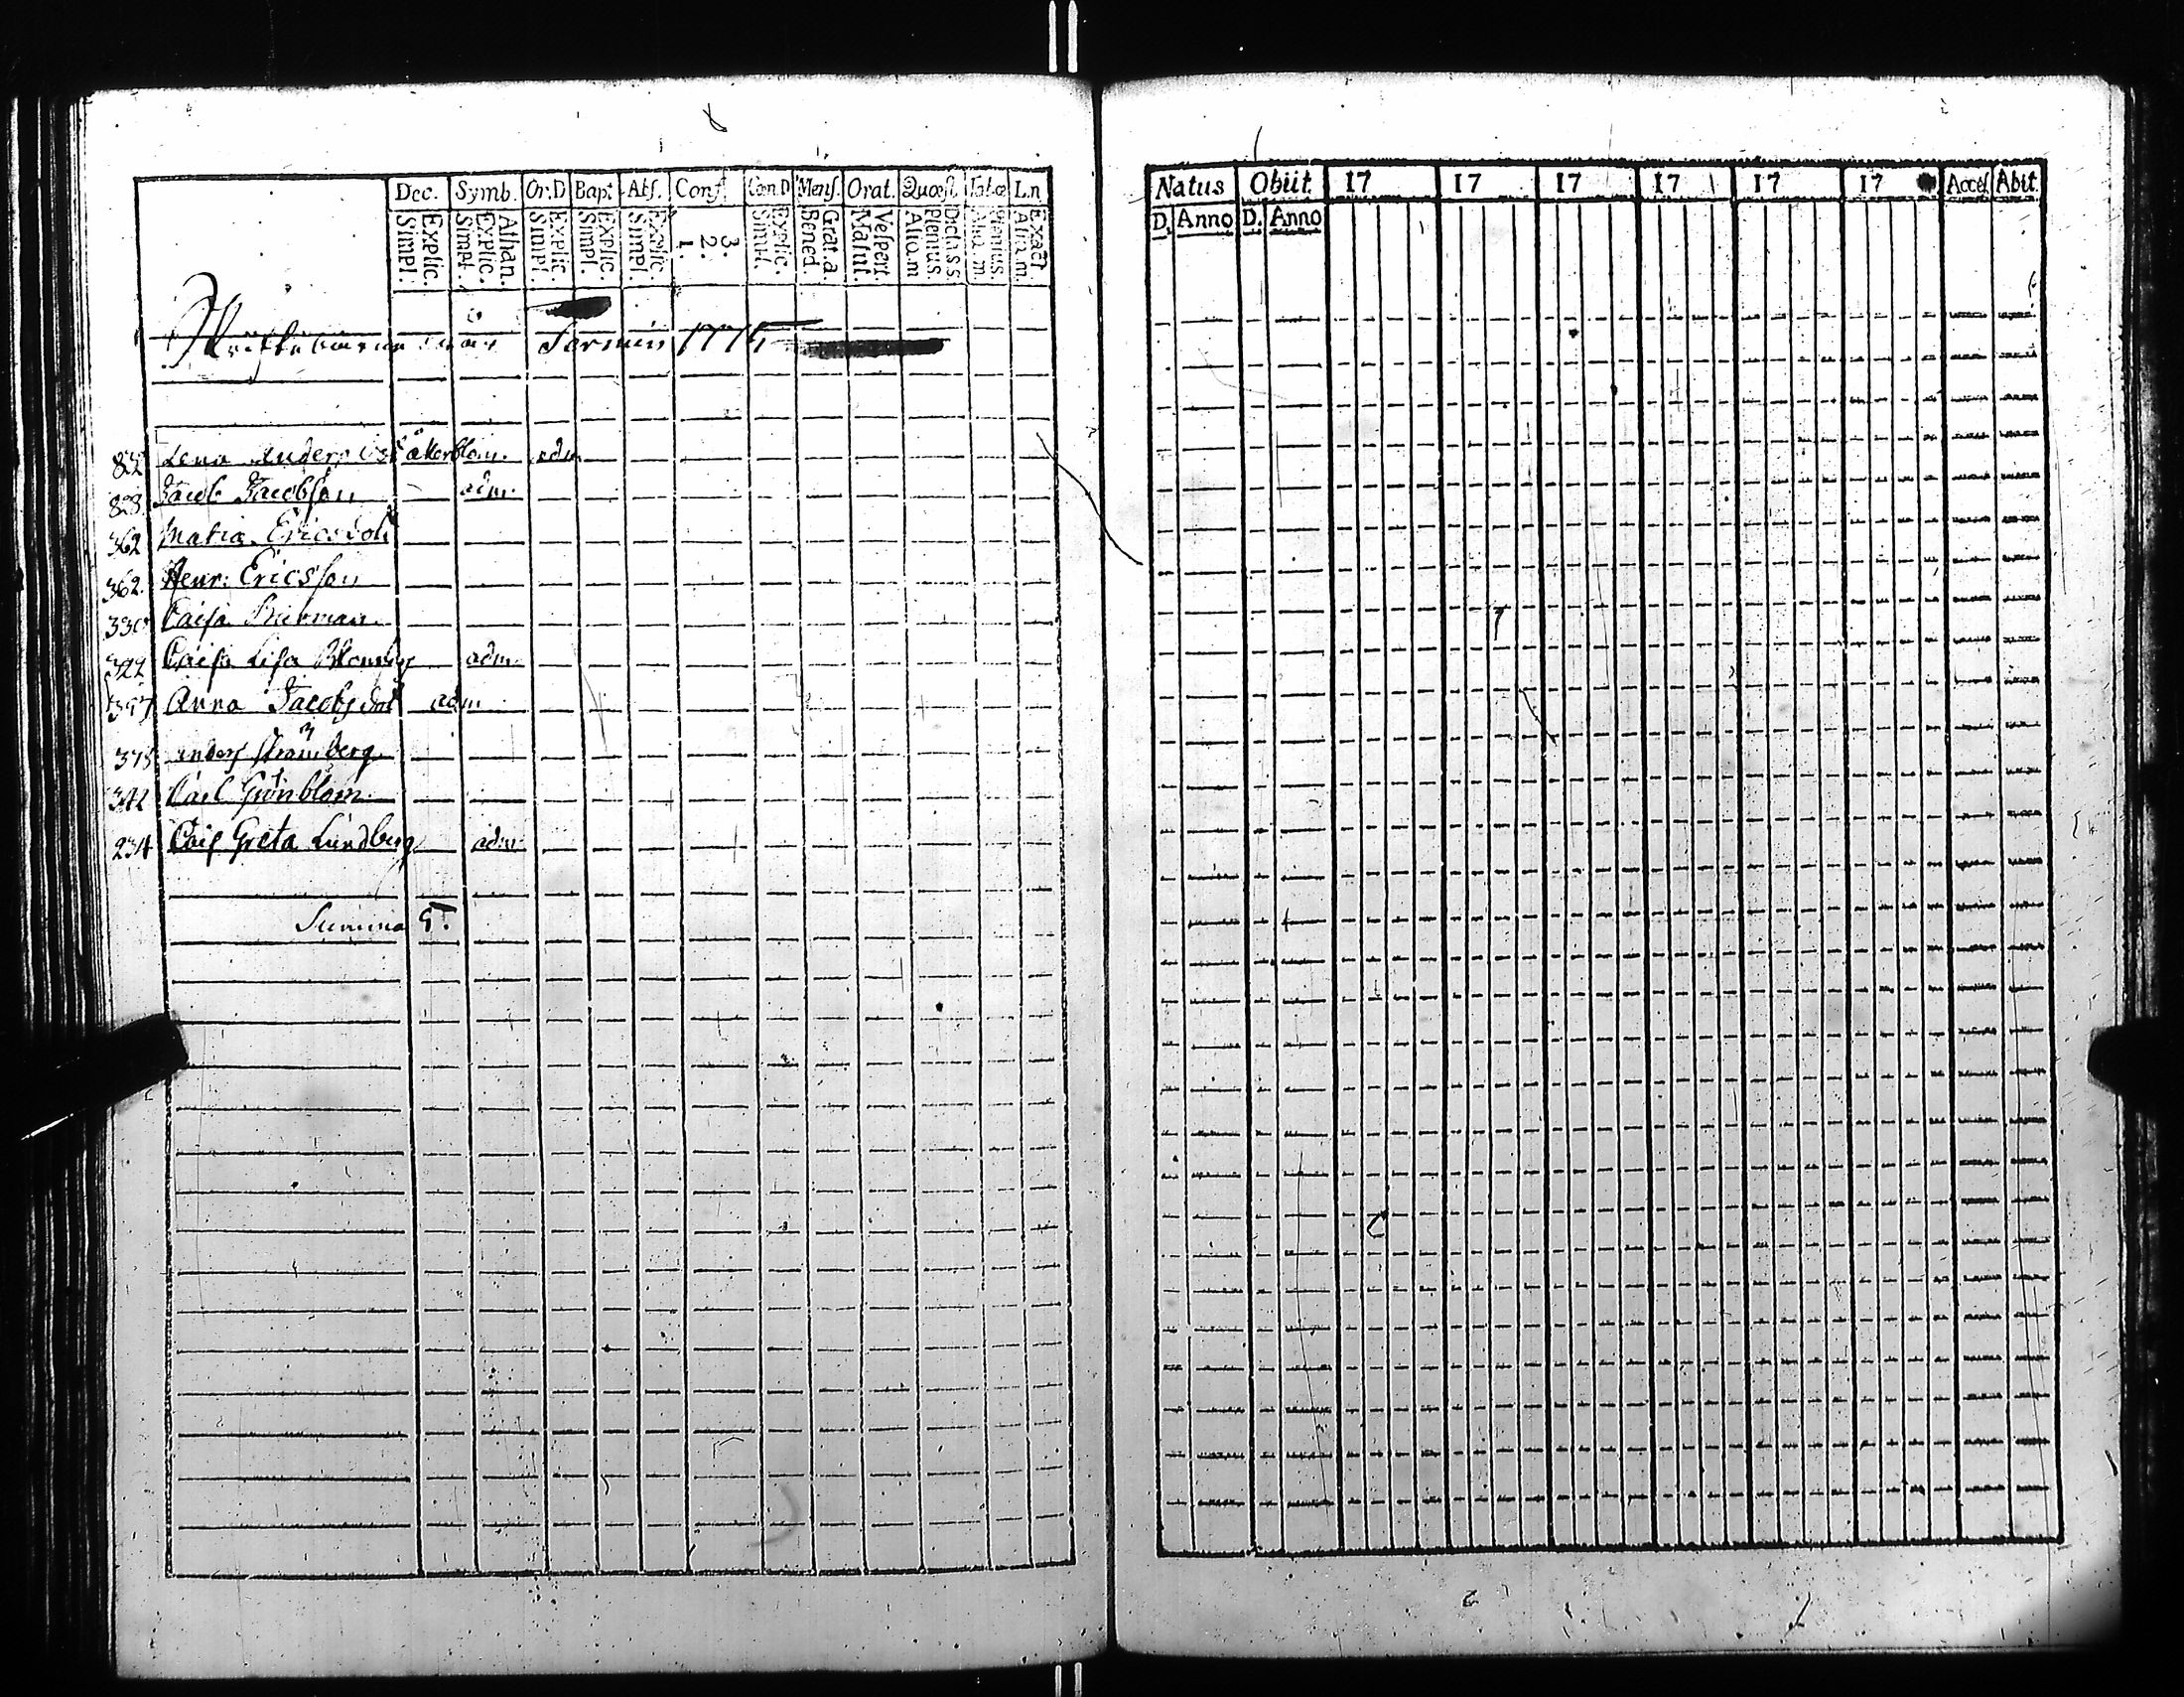 Dec. Symb. Or.D Bapt. Abs. Conf. Cœn.D Mens. Orat. Quæst. L.n
Simpl. Explic. Simpl. Explic. Athan. Simpl. Explic. Simpl. Explic. Simpl. Explic. 1. 2. 3. Simpl. Explic. Bened. Grat. a. Matut. Vespert. Aliq.m Plenius. Dicta.s.s. Aliq.m. Plenius. Aliq.m. Exact.
Termin 1775
Lena Anders dot åkerblom. adm
828. Jacob Jacobson adm.
362 Maria Ericsdot
362. Henr: Ericsson
Caisa
322 Caisa Lisa adm.
Anna Jacobsdot adm
375 anders Strömberg
342 Carl Grönblom
234 Cais Greta Lundberg adm
Summa 5.
Natus Obiit. 17 17 17 17 17 17 Acces. Abit.
D. Anno D. Anno